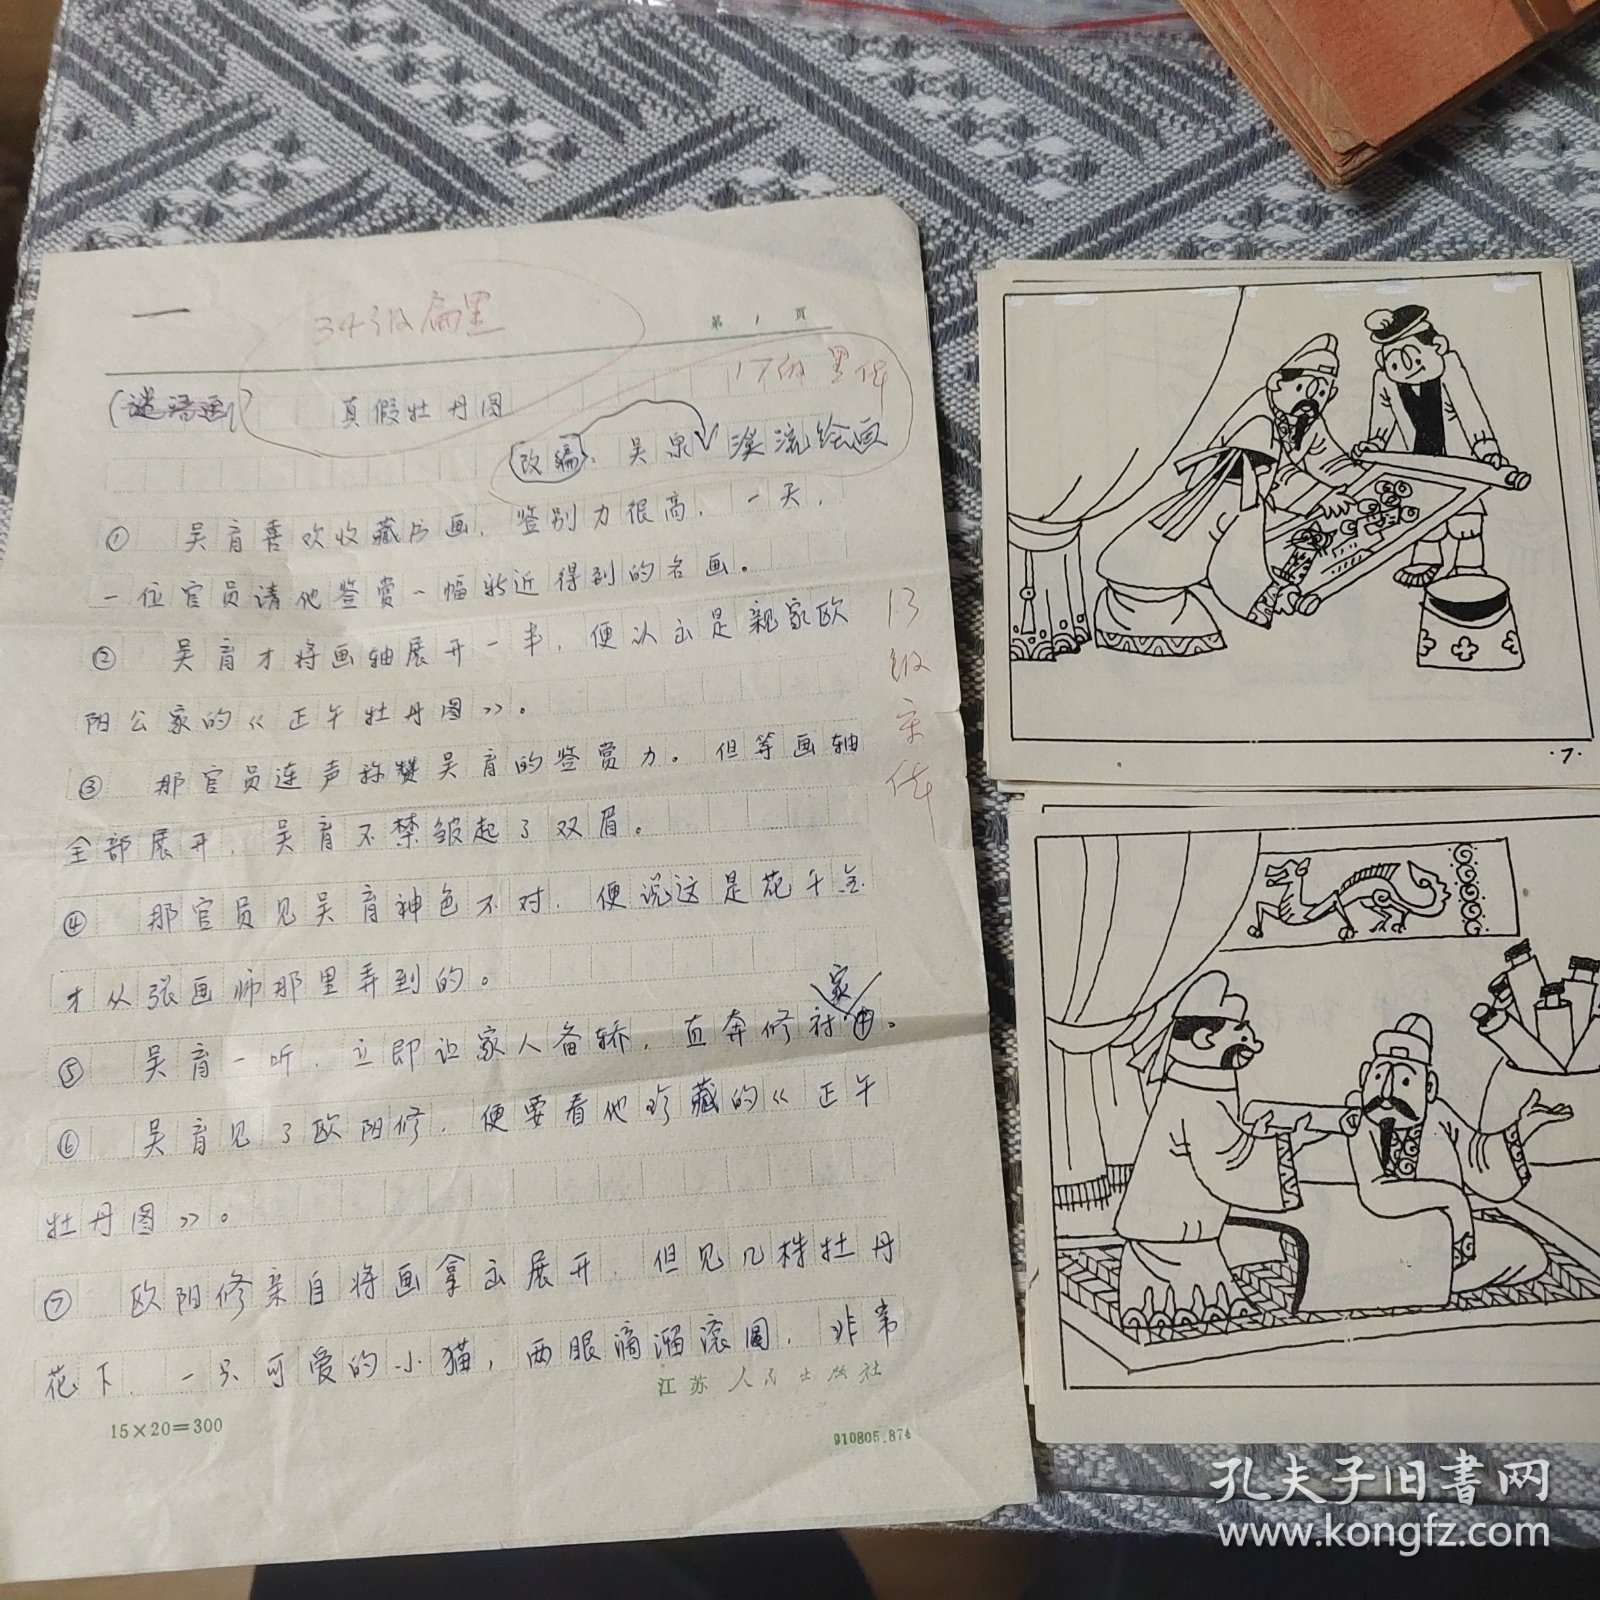 一
34级扁黑
第 1 页
17级黑体
(谜语画) 真假牡丹图
(改编) 吴泉 溪流绘画
① 吴育喜欢收藏书画，鉴别力很高，一天，
一位官员请他鉴赏一幅新近得到的名画。
② 吴育才将画轴展开一半，便认出是亲家欧
阳公家的《正午牡丹图》。
③ 那官员连声称赞吴育的鉴赏力。但等画轴
全部展开，吴育不禁皱起了双眉。
④ 那官员见吴育神色不对，便说这是花千金
才从张画师那里弄到的。
⑤ 吴育一听，立即让家人备轿，直奔修府家中。
⑥ 吴育见了欧阳修，便要看他珍藏的《正午
牡丹图》。
⑦ 欧阳修亲自将画拿出展开，但见几株牡丹
花下，一只可爱的小猫，两眼滴溜滚圆，非常
13级宋体
江苏人民出版社
15×20=300
910805.874
·7·
孔夫子旧书网
www.kongfz.com